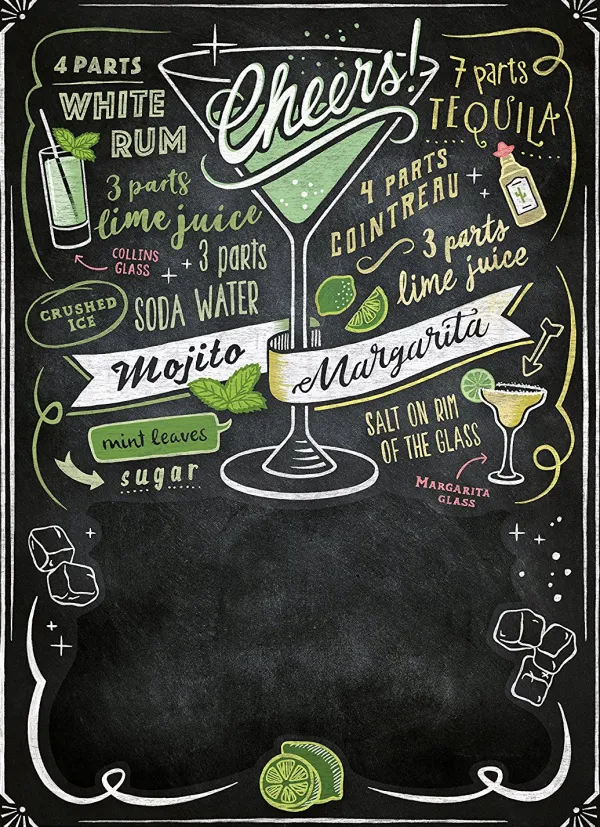 Cheers!
4 PARTS
WHITE
RUM
3 parts
lime juice
COLLINS
GLASS
+ 3 parts
SODA WATER
CRUSHED
ICE
Mojito
mint leaves
sugar
7 parts
TEQUILA
4 PARTS
COINTREAU
3 parts
lime juice
Margarita
SALT ON RIM
OF THE GLASS
MARGARITA
GLASS